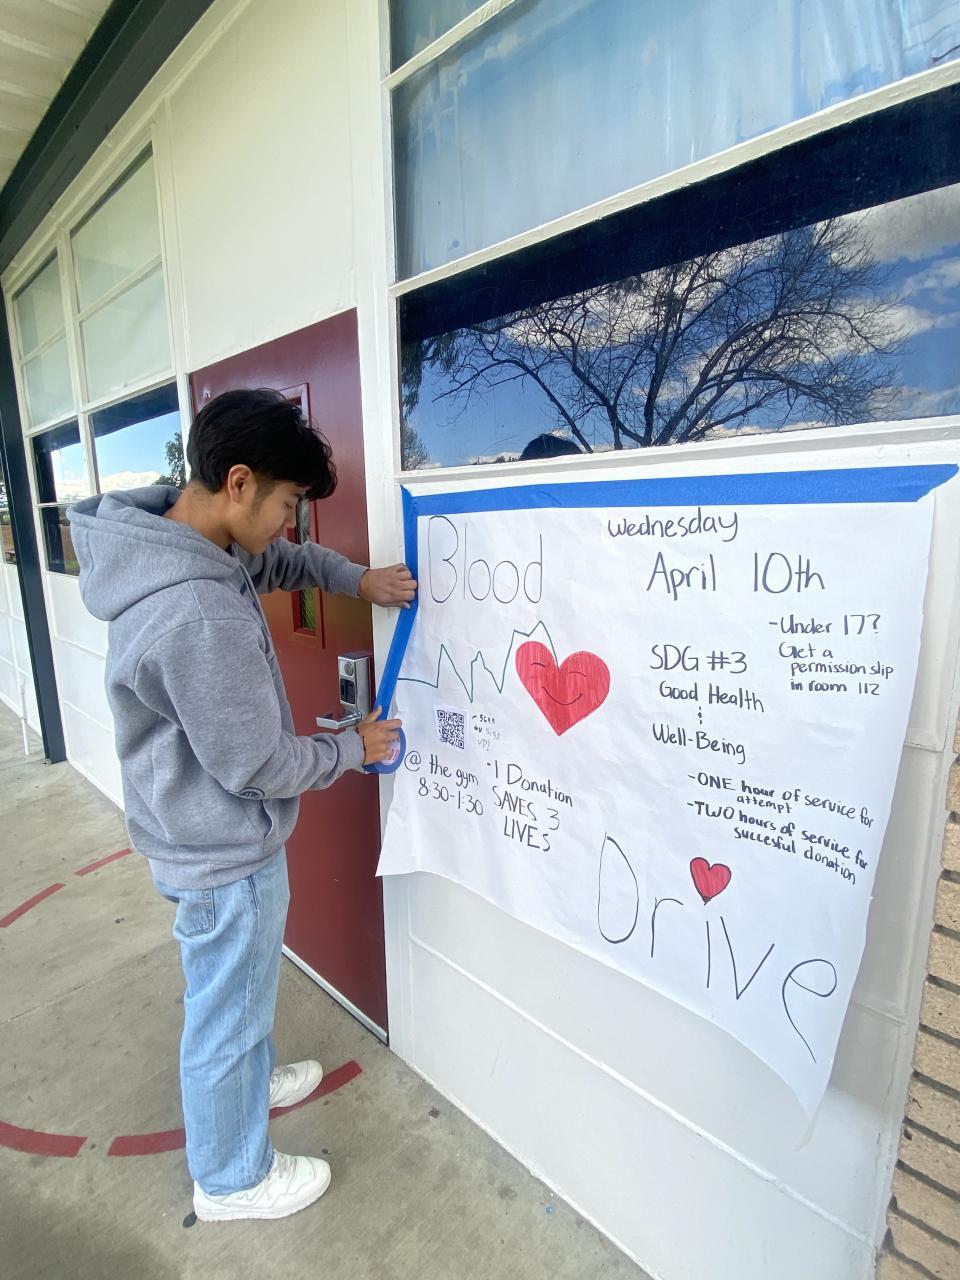 Blood
Wednesday
April 10th
-Under 17?
Get a
permission slip
in room 112
SDG #3
Good Health
&
Well-Being
-Scan
to sign
up!
@ the gym
8:30-1:30
-1 Donation
SAVES 3
LIVES
-ONE hour of service for
attempt
-TWO hours of service for
succesful donation
Drive